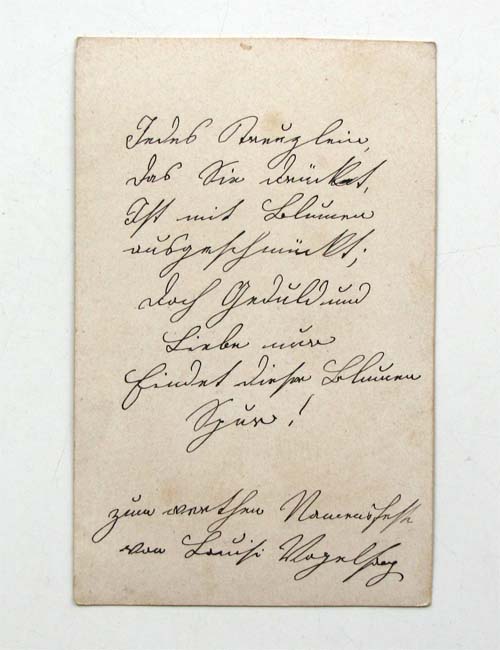 Jedes Kreuzlein,
das Sie drückt,
Ist mit Blumen
ausgeschmückt;
Doch Geduld und
Liebe nur
Findet dieser Blumen
Spur!
zum werthen Namensfeste
von Louisi